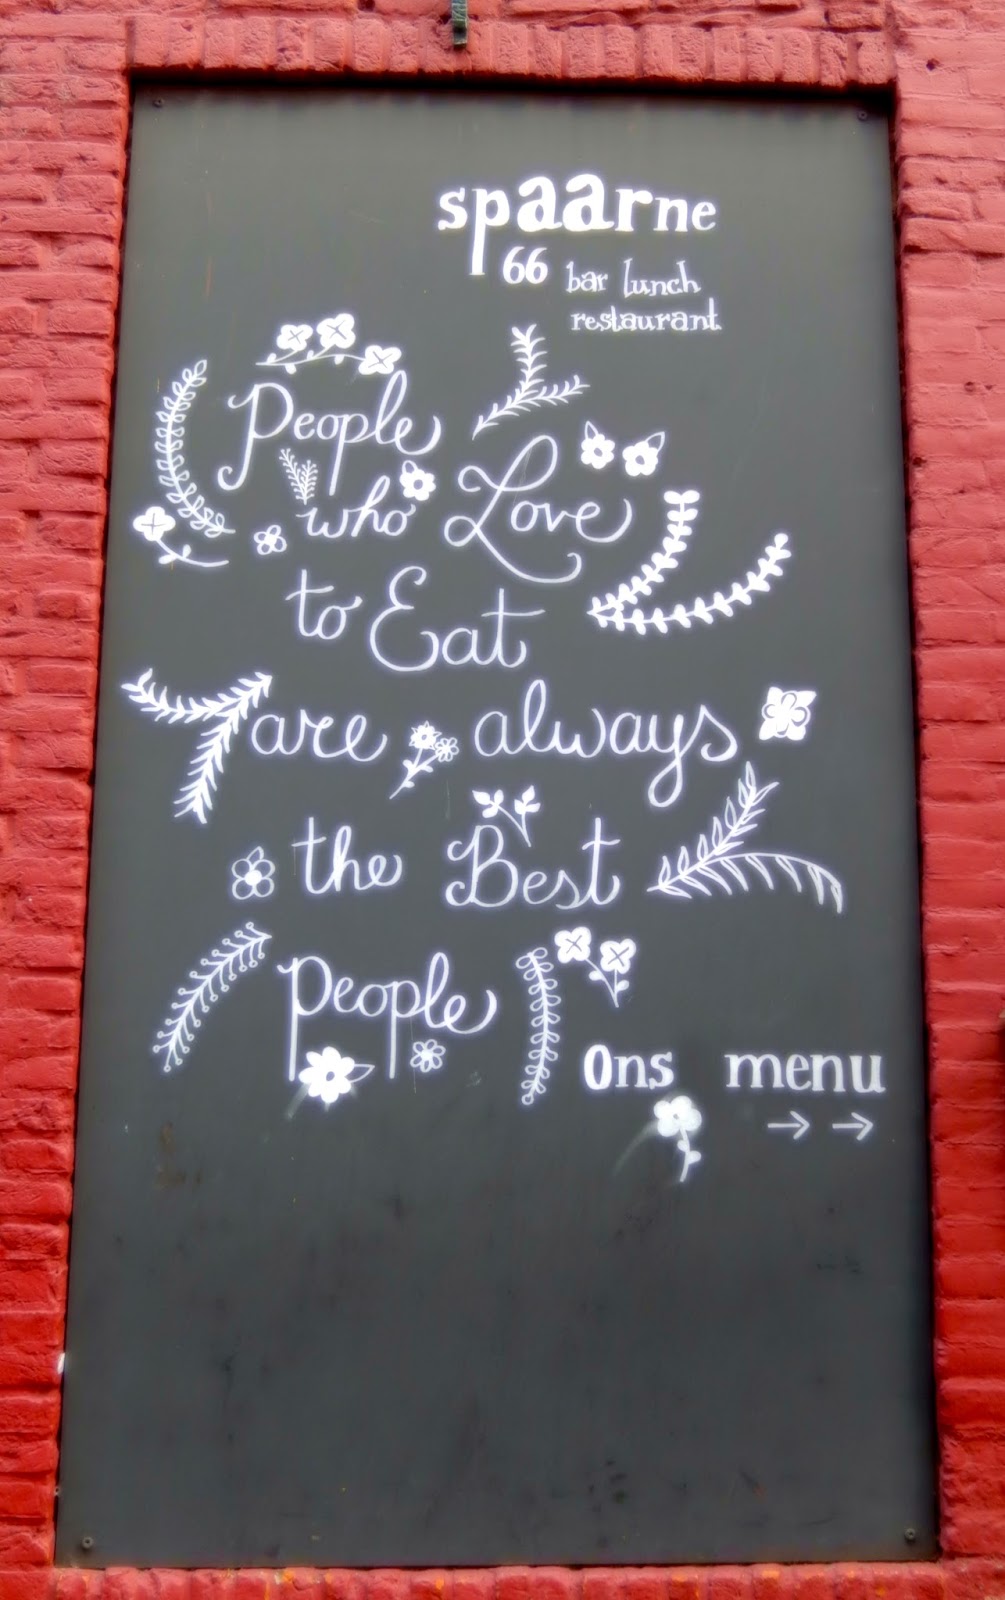 spaarne
66 bar lunch
restaurant
People
who Love
to Eat
are always
the Best
people
Ons menu
→ →